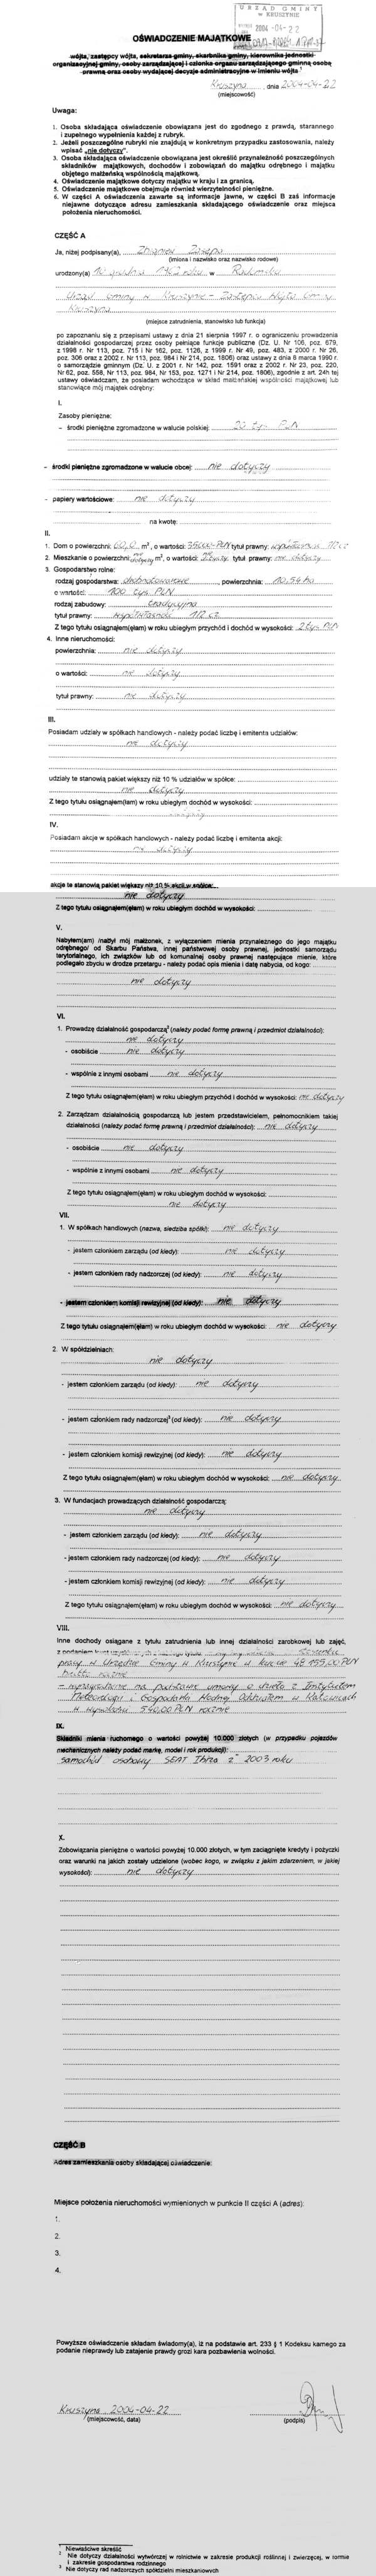 URZĄD GMINY
w KRUSZYNIE
2004 -04- 22
OŚWIADCZENIE MAJĄTKOWE
wójta, zastępcy wójta, sekretarza gminy, skarbnika gminy, kierownika jednostki
organizacyjnej gminy, osoby zarządzającej i członka organu zarządzającego gminną osobą
prawną oraz osoby wydającej decyzje administracyjne w imieniu wójta ¹
Kruszyna, dnia 2004-04-22
(miejscowość)
Uwaga:
1. Osoba składająca oświadczenie obowiązana jest do zgodnego z prawdą, starannego
i zupełnego wypełnienia każdej z rubryk.
2. Jeżeli poszczególne rubryki nie znajdują w konkretnym przypadku zastosowania, należy
wpisać „nie dotyczy".
3. Osoba składająca oświadczenie obowiązana jest określić przynależność poszczególnych
składników majątkowych, dochodów i zobowiązań do majątku odrębnego i majątku
objętego małżeńską wspólnością majątkową.
4. Oświadczenie majątkowe dotyczy majątku w kraju i za granicą.
5. Oświadczenie majątkowe obejmuje również wierzytelności pieniężne.
6. W części A oświadczenia zawarte są informacje jawne, w części B zaś informacje
niejawne dotyczące adresu zamieszkania składającego oświadczenie oraz miejsca
położenia nieruchomości.
CZĘŚĆ A
Ja, niżej podpisany(a), Zbigniew
(imiona i nazwisko oraz nazwisko rodowe)
urodzony(a) w Radomsku
Urząd Gminy w Kruszynie - Zastępca Wójta Gminy
Kruszyna
(miejsce zatrudnienia, stanowisko lub funkcja)
po zapoznaniu się z przepisami ustawy z dnia 21 sierpnia 1997 r. o ograniczeniu prowadzenia
działalności gospodarczej przez osoby pełniące funkcje publiczne (Dz. U. Nr 106, poz. 679,
z 1998 r. Nr 113, poz. 715 i Nr 162, poz. 1126, z 1999 r. Nr 49, poz. 483, z 2000 r. Nr 26,
poz. 306 oraz z 2002 r. Nr 113, poz. 984 i Nr 214, poz. 1806) oraz ustawy z dnia 8 marca 1990 r.
o samorządzie gminnym (Dz. U. z 2001 r. Nr 142, poz. 1591 oraz z 2002 r. Nr 23, poz. 220,
Nr 62, poz. 558, Nr 113, poz. 984, Nr 153, poz. 1271 i Nr 214, poz. 1806), zgodnie z art. 24h tej
ustawy oświadczam, że posiadam wchodzące w skład małżeńskiej wspólności majątkowej lub
stanowiące mój majątek odrębny:
I.
Zasoby pieniężne:
– środki pieniężne zgromadzone w walucie polskiej: 20 tys. PLN
– środki pieniężne zgromadzone w walucie obcej: nie dotyczy
– papiery wartościowe: nie dotyczy
na kwotę:
II.
1. Dom o powierzchni: m², o wartości: tytuł prawny: współwłasność 1/2 cz.
2. Mieszkanie o powierzchni: nie dotyczy m², o wartości: nie dotyczy tytuł prawny: nie dotyczy
3. Gospodarstwo rolne:
rodzaj gospodarstwa: drobnotowarowe, powierzchnia: 10,54 ha
o wartości: 100 tys. PLN
rodzaj zabudowy: tradycyjna
tytuł prawny: współwłasność 1/2 cz.
Z tego tytułu osiągnąłem(ęłam) w roku ubiegłym przychód i dochód w wysokości: 2 tys. PLN
4. Inne nieruchomości:
powierzchnia: nie dotyczy
o wartości: nie dotyczy
tytuł prawny: nie dotyczy
III.
Posiadam udziały w spółkach handlowych - należy podać liczbę i emitenta udziałów:
nie dotyczy
udziały te stanowią pakiet większy niż 10 % udziałów w spółce:
nie dotyczy
Z tego tytułu osiągnąłem(ęłam) w roku ubiegłym dochód w wysokości:
nie dotyczy
IV.
Posiadam akcje w spółkach handlowych - należy podać liczbę i emitenta akcji:
nie dotyczy
akcje te stanowią pakiet większy niż 10 % akcji w spółce:
nie dotyczy
Z tego tytułu osiągnąłem(ęłam) w roku ubiegłym dochód w wysokości:
V.
Nabyłem(am) /nabył mój małżonek, z wyłączeniem mienia przynależnego do jego majątku
odrębnego/ od Skarbu Państwa, innej państwowej osoby prawnej, jednostki samorządu
terytorialnego, ich związków lub od komunalnej osoby prawnej następujące mienie, które
podlegało zbyciu w drodze przetargu - należy podać opis mienia i datę nabycia, od kogo:
nie dotyczy
VI.
1. Prowadzę działalność gospodarczą² (należy podać formę prawną i przedmiot działalności):
nie dotyczy
- osobiście nie dotyczy
- wspólnie z innymi osobami nie dotyczy
Z tego tytułu osiągnąłem(ęłam) w roku ubiegłym przychód i dochód w wysokości: nie dotyczy
2. Zarządzam działalnością gospodarczą lub jestem przedstawicielem, pełnomocnikiem takiej
działalności (należy podać formę prawną i przedmiot działalności): nie dotyczy
- osobiście nie dotyczy
- wspólnie z innymi osobami nie dotyczy
Z tego tytułu osiągnąłem(ęłam) w roku ubiegłym dochód w wysokości:
nie dotyczy
VII.
1. W spółkach handlowych (nazwa, siedziba spółki): nie dotyczy
- jestem członkiem zarządu (od kiedy): nie dotyczy
- jestem członkiem rady nadzorczej (od kiedy): nie dotyczy
- jestem członkiem komisji rewizyjnej (od kiedy): nie dotyczy
Z tego tytułu osiągnąłem(ęłam) w roku ubiegłym dochód w wysokości: nie dotyczy
2. W spółdzielniach:
nie dotyczy
- jestem członkiem zarządu (od kiedy): nie dotyczy
- jestem członkiem rady nadzorczej³ (od kiedy): nie dotyczy
- jestem członkiem komisji rewizyjnej (od kiedy): nie dotyczy
Z tego tytułu osiągnąłem(ęłam) w roku ubiegłym dochód w wysokości: nie dotyczy
3. W fundacjach prowadzących działalność gospodarczą:
nie dotyczy
- jestem członkiem zarządu (od kiedy): nie dotyczy
- jestem członkiem rady nadzorczej (od kiedy): nie dotyczy
- jestem członkiem komisji rewizyjnej (od kiedy): nie dotyczy
Z tego tytułu osiągnąłem(ęłam) w roku ubiegłym dochód w wysokości: nie dotyczy
VIII.
Inne dochody osiągane z tytułu zatrudnienia lub innej działalności zarobkowej lub zajęć,
z podaniem kwot uzyskiwanych z każdego tytułu: stosunku
pracy w Urzędzie Gminy w Kruszynie w kwocie 48 155,00 PLN
brutto rocznie
- wynagrodzenie na podstawie umowy o dzieło z Instytutem
Meteorologii i Gospodarki Wodnej Oddziałem w Katowicach
w wysokości 540,00 PLN rocznie
IX.
Składniki mienia ruchomego o wartości powyżej 10.000 złotych (w przypadku pojazdów
mechanicznych należy podać markę, model i rok produkcji):
samochód osobowy SEAT Ibiza z 2003 roku
X.
Zobowiązania pieniężne o wartości powyżej 10.000 złotych, w tym zaciągnięte kredyty i pożyczki
oraz warunki na jakich zostały udzielone (wobec kogo, w związku z jakim zdarzeniem, w jakiej
wysokości): nie dotyczy
CZĘŚĆ B
Adres zamieszkania osoby składającej oświadczenie:
Miejsce położenia nieruchomości wymienionych w punkcie II części A (adres):
1.
2.
3.
4.
Powyższe oświadczenie składam świadomy(a), iż na podstawie art. 233 § 1 Kodeksu karnego za
podanie nieprawdy lub zatajenie prawdy grozi kara pozbawienia wolności.
Kruszyna 2004-04-22
(miejscowość, data)
(podpis)
¹ Niewłaściwe skreślić
² Nie dotyczy działalności wytwórczej w rolnictwie w zakresie produkcji roślinnej i zwierzęcej, w formie
i zakresie gospodarstwa rodzinnego
³ Nie dotyczy rad nadzorczych spółdzielni mieszkaniowych